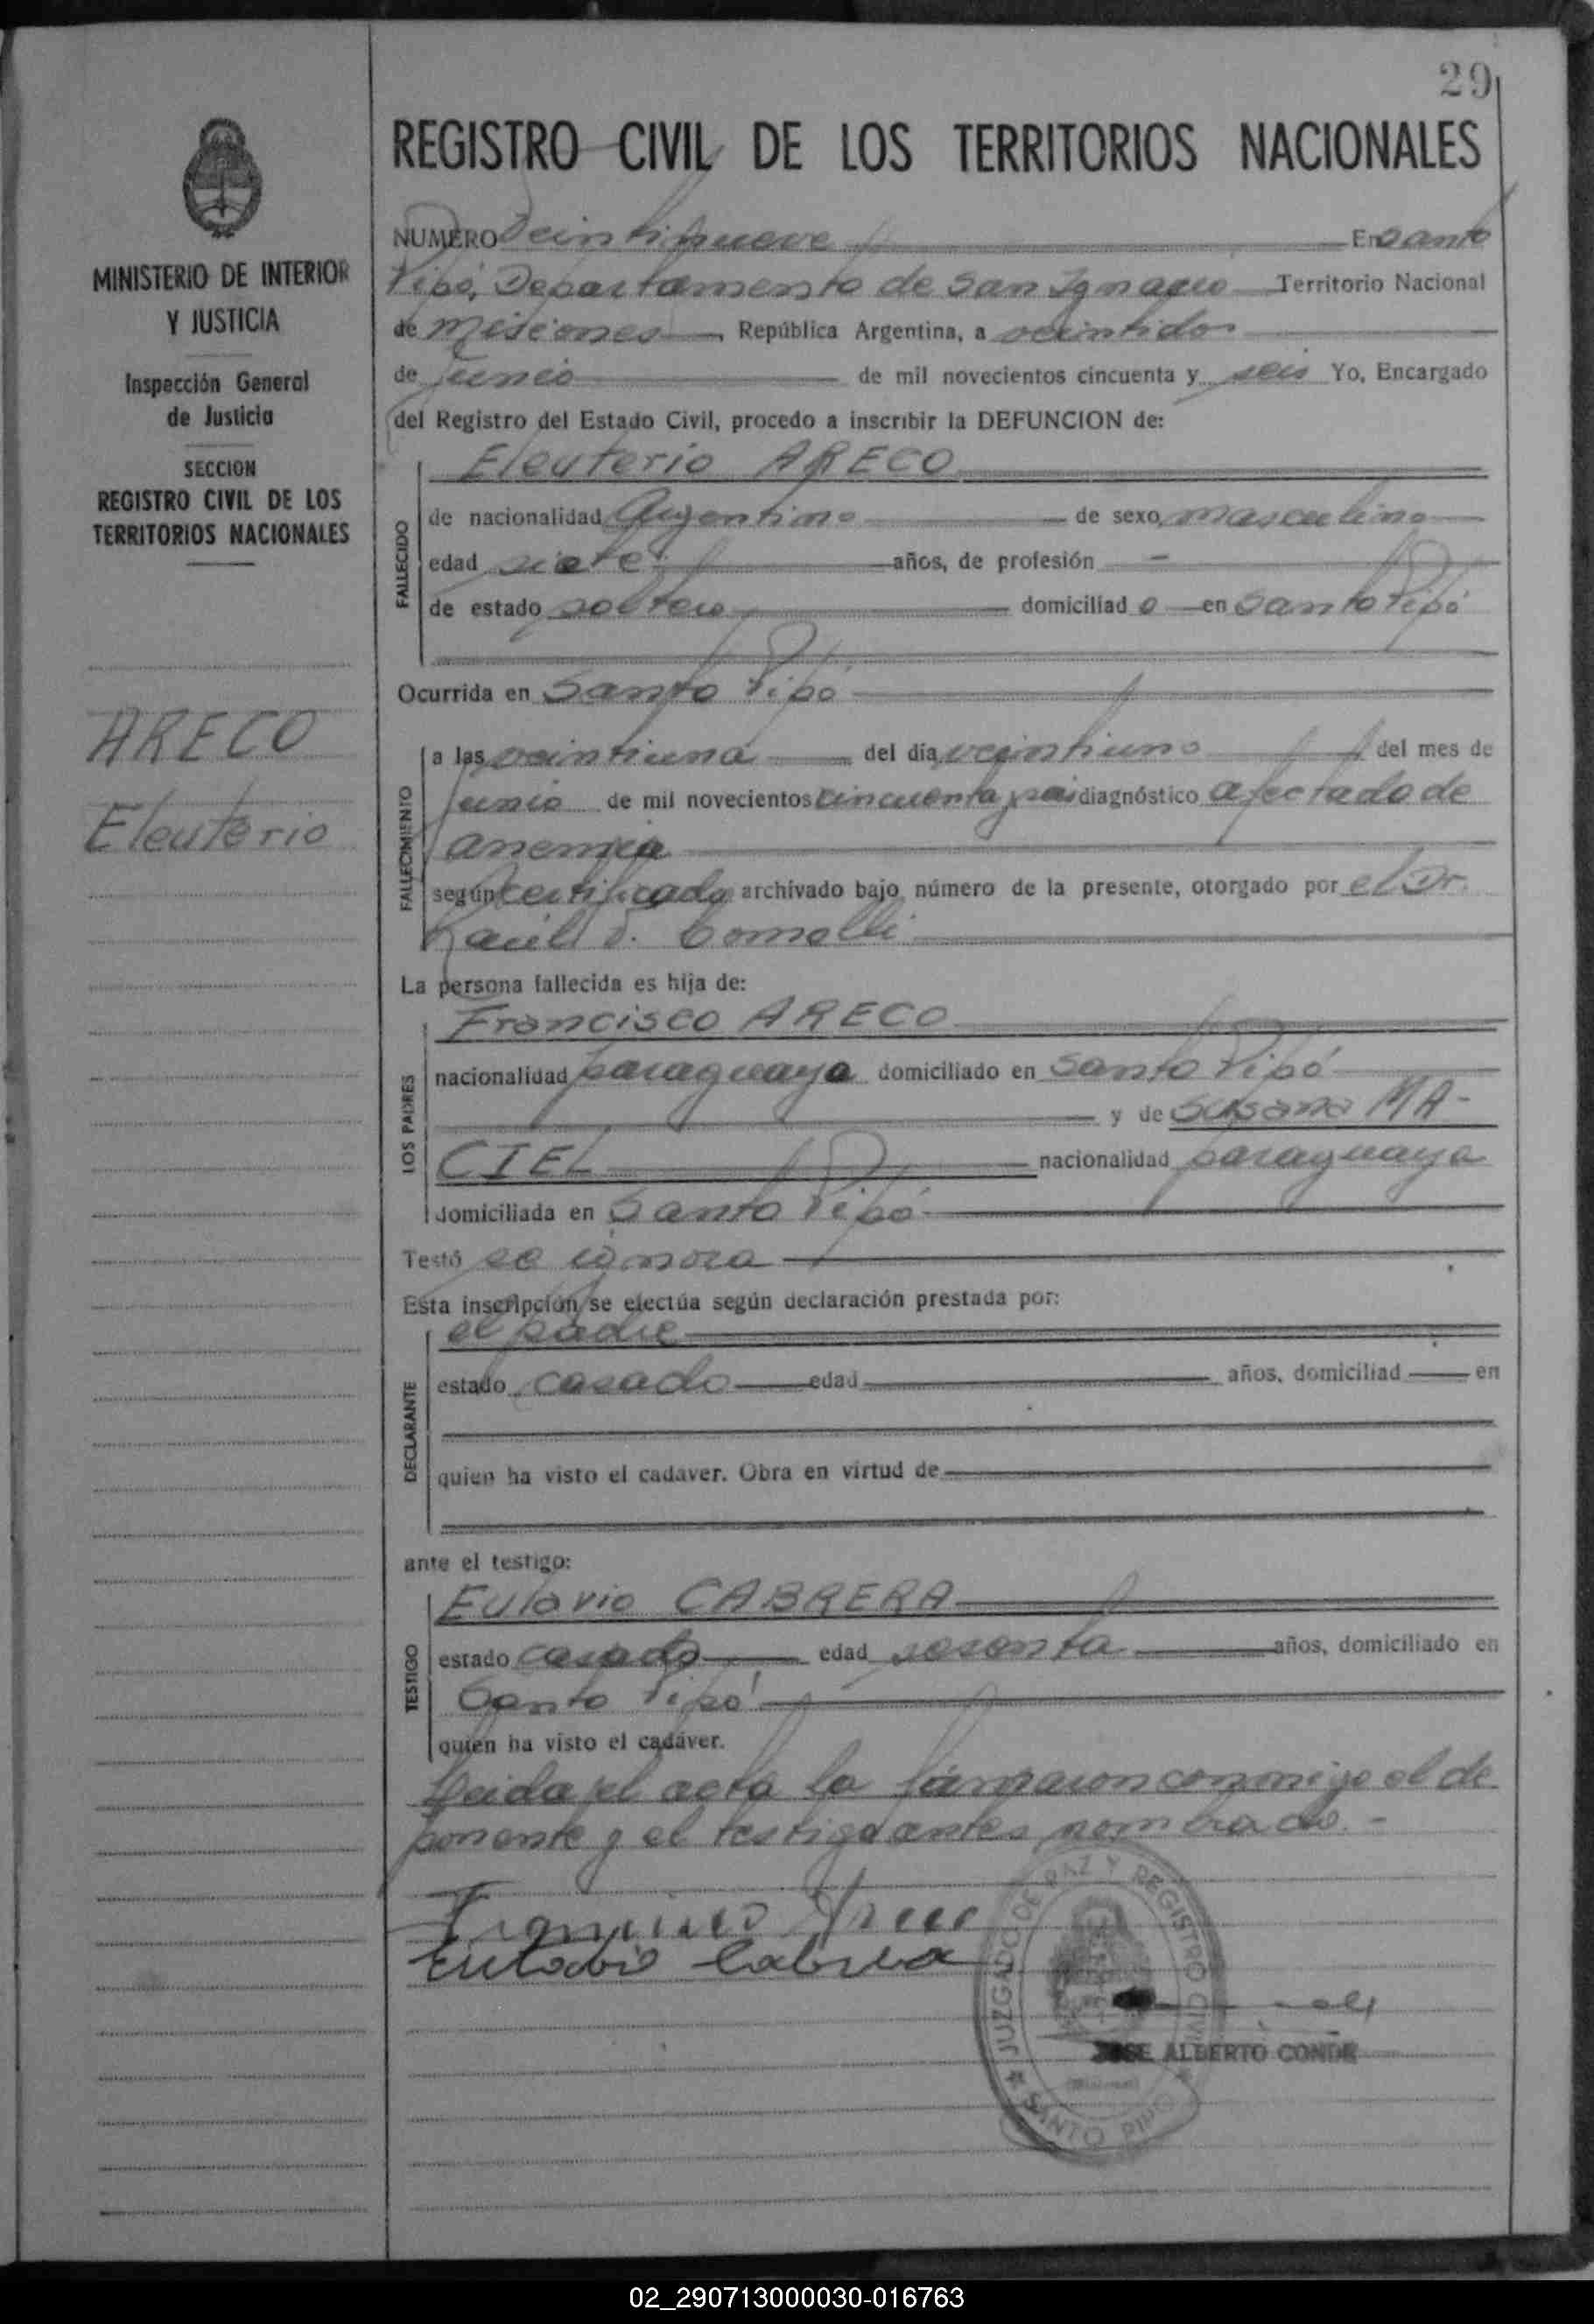 29
REGISTRO CIVIL DE LOS TERRITORIOS NACIONALES
MINISTERIO DE INTERIOR
Y JUSTICIA
Inspección General
de Justicia
SECCION
REGISTRO CIVIL DE LOS
TERRITORIOS NACIONALES
ARECO
Eleuterio
NUMERO Veintinueve En Santo
Pipó, Departamento de San Ignacio Territorio Nacional
de Misiones República Argentina, a veintidos
de junio de mil novecientos cincuenta y seis Yo, Encargado
del Registro del Estado Civil, procedo a inscribir la DEFUNCION de:
Eleuterio ARECO
FALLECIDO
de nacionalidad Argentino de sexo masculino
edad siete años, de profesión —
de estado soltero domiciliad o en Santo Pipó
Ocurrida en Santo Pipó
FALLECIMIENTO
a las veintiuna del día veintiuno del mes de
junio de mil novecientos cincuenta y seis diagnóstico afectado de
anemia
según certificado archivado bajo número de la presente, otorgado por el Dr.
Raúl
La persona fallecida es hija de:
Francisco ARECO
LOS PADRES
nacionalidad paraguaya domiciliado en Santo Pipó
y de Susana MA-
CIEL nacionalidad paraguaya
domiciliada en Santo Pipó
Testó se ignora
Esta inscripción se efectúa según declaración prestada por:
el padre
DECLARANTE
estado casado edad años, domiciliad en
quien ha visto el cadaver. Obra en virtud de
ante el testigo:
Eulavio CABRERA
TESTIGO
estado casado edad sesenta años, domiciliado en
Santo Pipó
quien ha visto el cadáver.
Leida el acta la firmaron conmigo el de
ponente y el testigo antes nombrado.-
Francisco Areco
Eulabio Cabrera
JUZGADO DE PAZ Y REGISTRO CIVIL
SANTO PIPO
JOSE ALBERTO CONDE
02_290713000030-016763